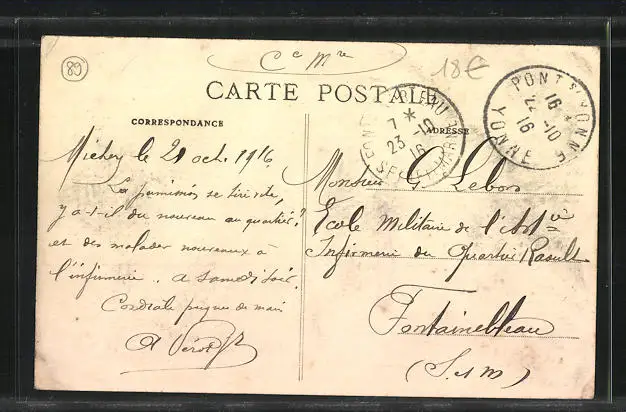 89
Cie Mre
18€
CARTE POSTALE
PONT S/ YONNE
16
22-10
16
YONNE
FONTAINEBLEAU
7*
23-10
16
SEINE-&-MARNE
CORRESPONDANCE
ADRESSE
Michery le 21 oct. 1916
Les permissions se tire vite,
y a-t-il du nouveau au quartier?
et des malades nouveaux à
l'infirmerie. a samedi soir.
Cordiale poignée de main
Monsieur G Lebon
Ecole Militaire de l'Artie
Infirmerie du Quartier Raoult
Fontainebleau
(S. et M)